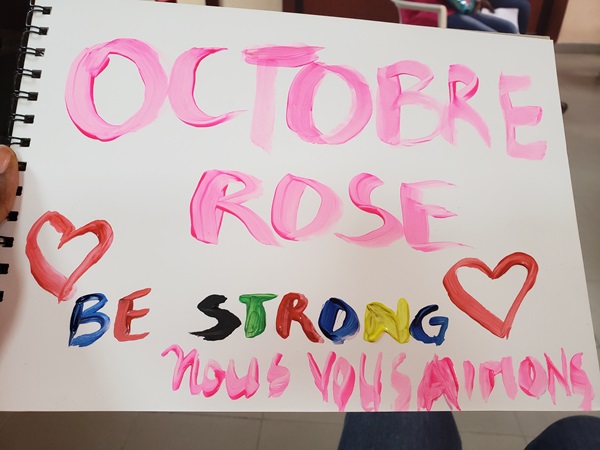 OCTOBRE
ROSE
BE STRONG
nous vous AIMONS